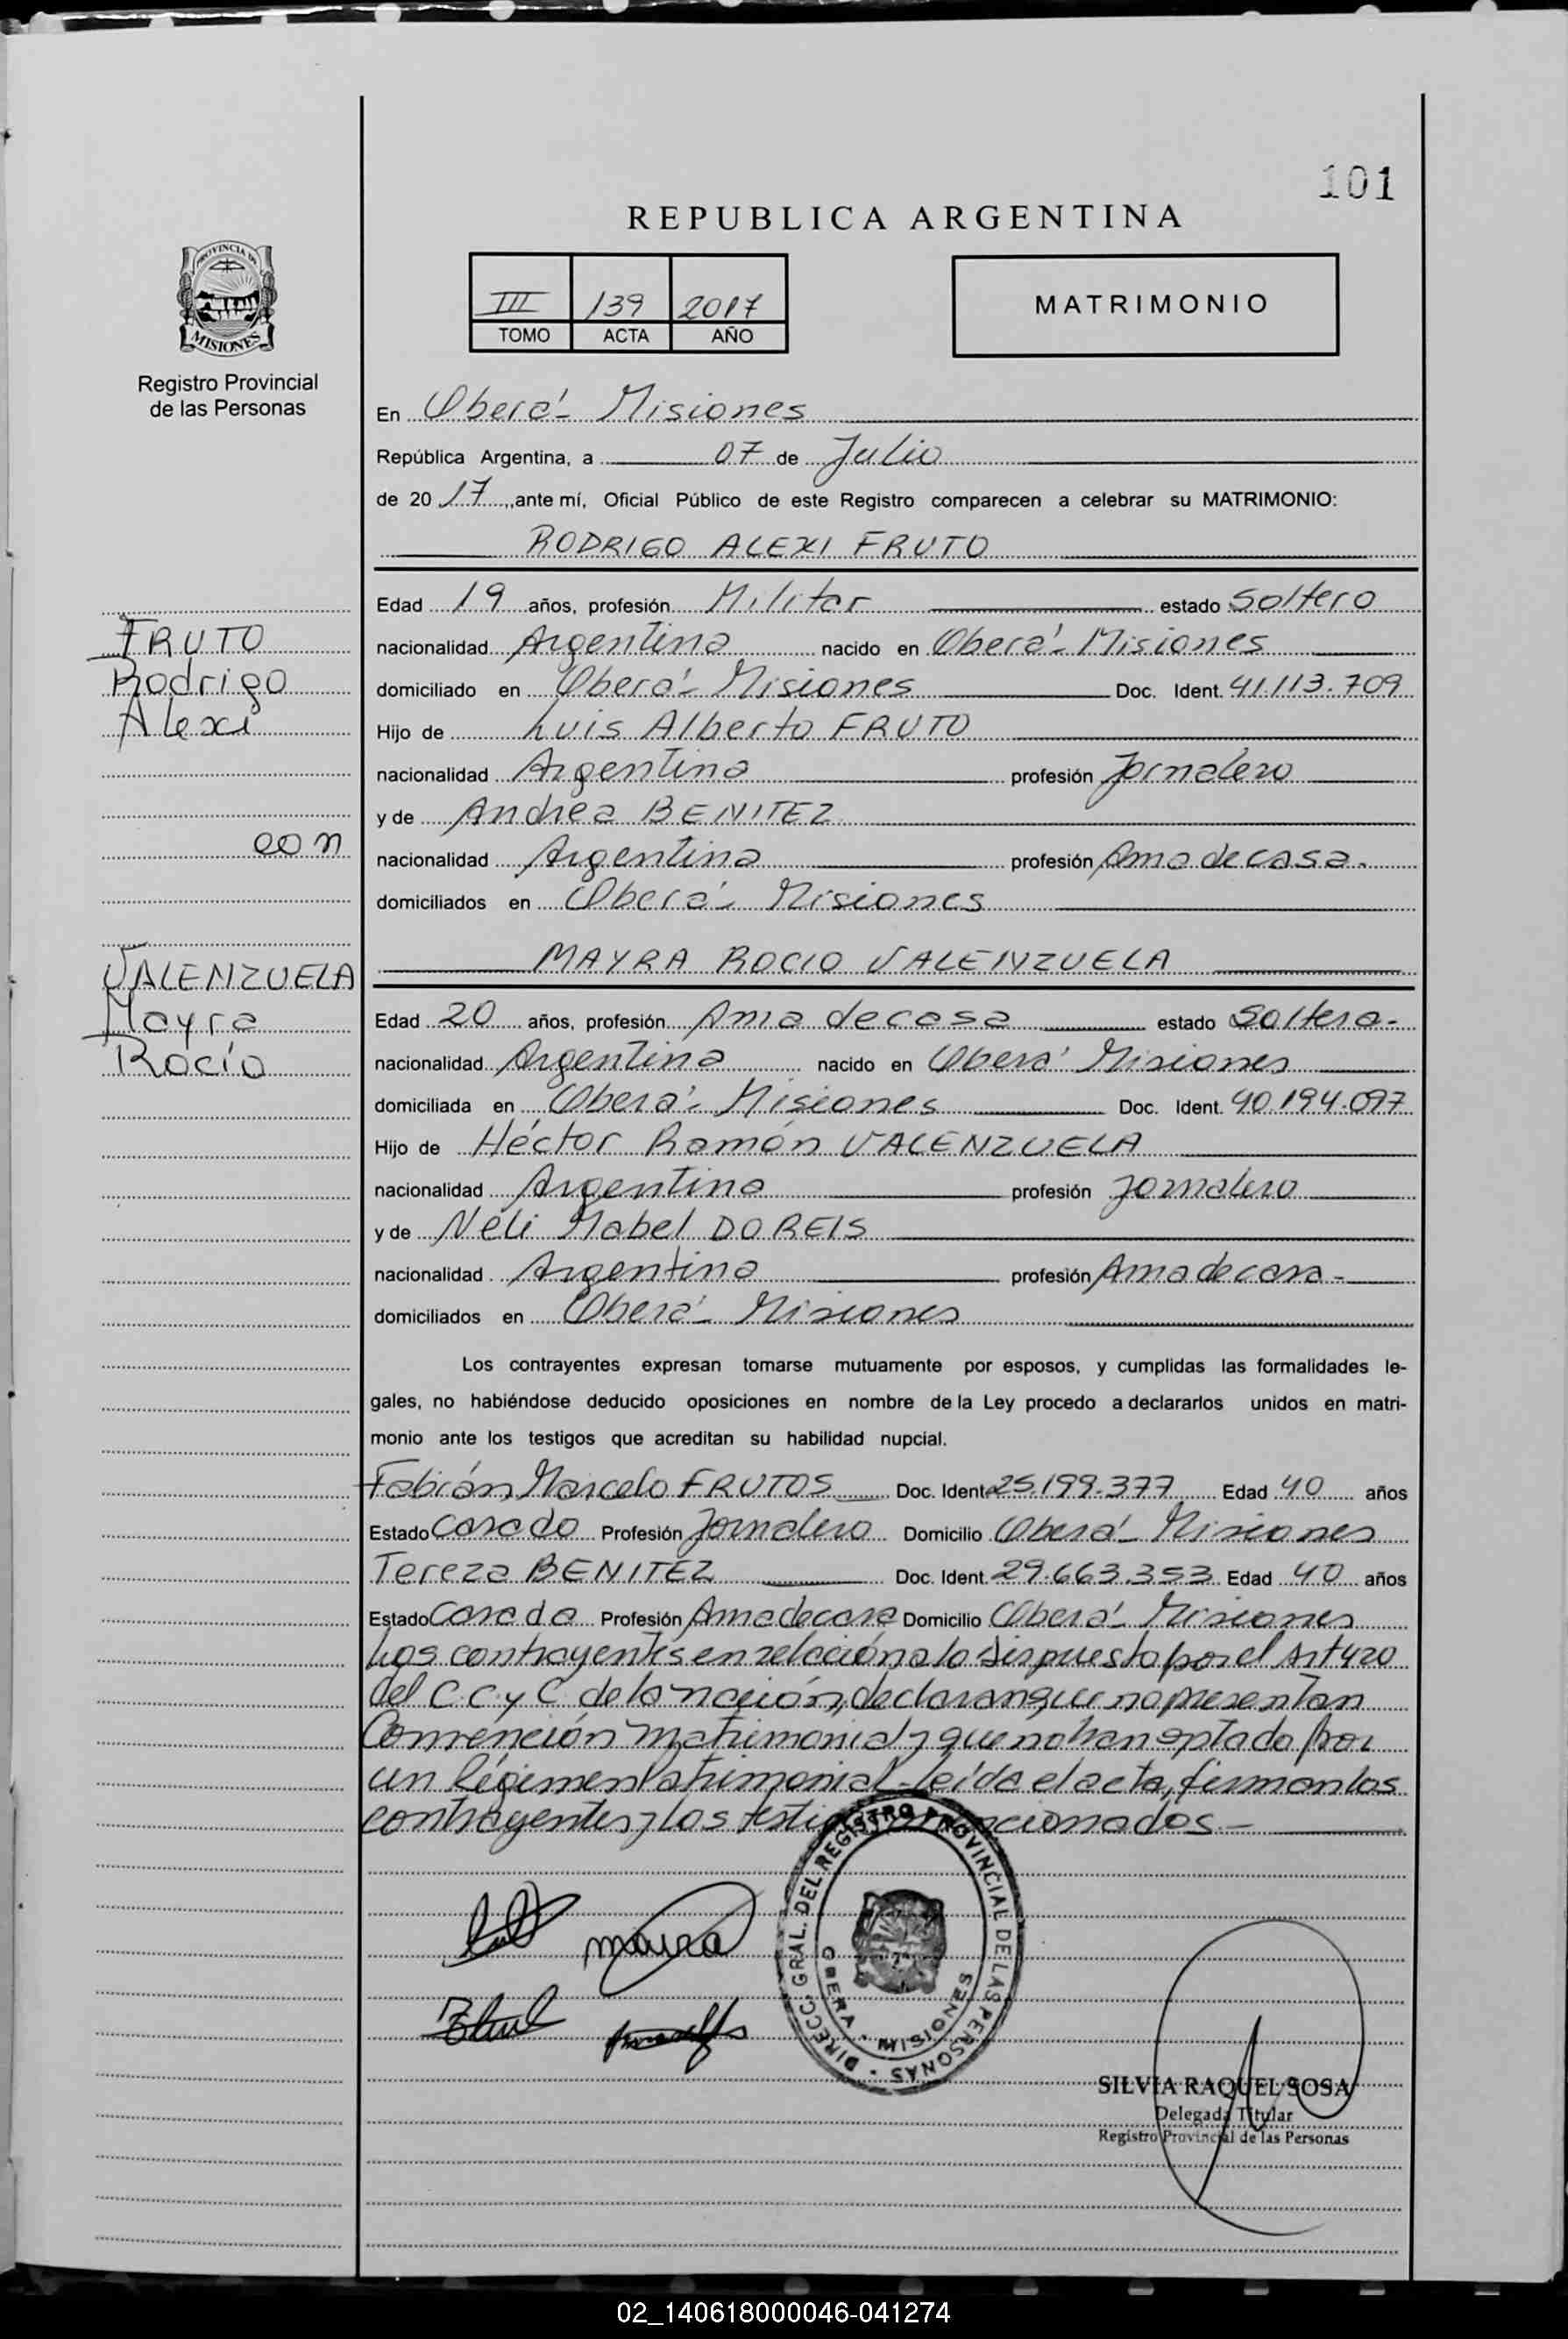 101
REPUBLICA ARGENTINA
PROVINCIA DE
MISIONES
Registro Provincial
de las Personas
III 139 2017
TOMO ACTA AÑO
MATRIMONIO
En Oberá - Misiones
República Argentina, a 07 de Julio
de 20 17, ante mí, Oficial Público de este Registro comparecen a celebrar su MATRIMONIO:
RODRIGO ALEXI FRUTO
FRUTO
Rodrigo
Alexi
con
VALENZUELA
Mayra
Rocío
Edad 19 años, profesión Militar estado Soltero
nacionalidad Argentina nacido en Oberá - Misiones
domiciliado en Oberá - Misiones Doc. Ident. 41.113.709
Hijo de Luis Alberto FRUTO
nacionalidad Argentina profesión Jornalero
y de Andrea BENITEZ
nacionalidad Argentina profesión Ama de casa.
domiciliados en Oberá - Misiones
MAYRA ROCIO VALENZUELA
Edad 20 años, profesión Ama de casa estado Soltera -
nacionalidad Argentina nacido en Oberá Misiones
domiciliada en Oberá - Misiones Doc. Ident. 40.194.097
Hijo de Héctor Ramón VALENZUELA
nacionalidad Argentina profesión Jornalero
y de Neli Mabel DO REIS
nacionalidad Argentina profesión Ama de casa -
domiciliados en Oberá - Misiones
Los contrayentes expresan tomarse mutuamente por esposos, y cumplidas las formalidades le-
gales, no habiéndose deducido oposiciones en nombre de la Ley procedo a declararlos unidos en matri-
monio ante los testigos que acreditan su habilidad nupcial.
Fabián Marcelo FRUTOS Doc. Ident. 25.199.377 Edad 40 años
Estado Casado Profesión Jornalero Domicilio Oberá - Misiones
Tereza BENITEZ Doc. Ident. 29.663.353 Edad 40 años
Estado Casada Profesión Ama de casa Domicilio Oberá - Misiones
Los contrayentes en relación a lo dispuesto por el Art 420
del C.C. y C de la nación, declaran que no presentan
Convención matrimonial y que no han optado por
un Régimen Patrimonial - leída el acta, firman los
contrayentes y los testigos mencionados. -
mayra
DIRECC. GRAL. DEL REGISTRO PROVINCIAL DE LAS PERSONAS
OBERA - MISIONES
SILVIA RAQUEL SOSA
Delegada Titular
Registro Provincial de las Personas
02_140618000046-041274